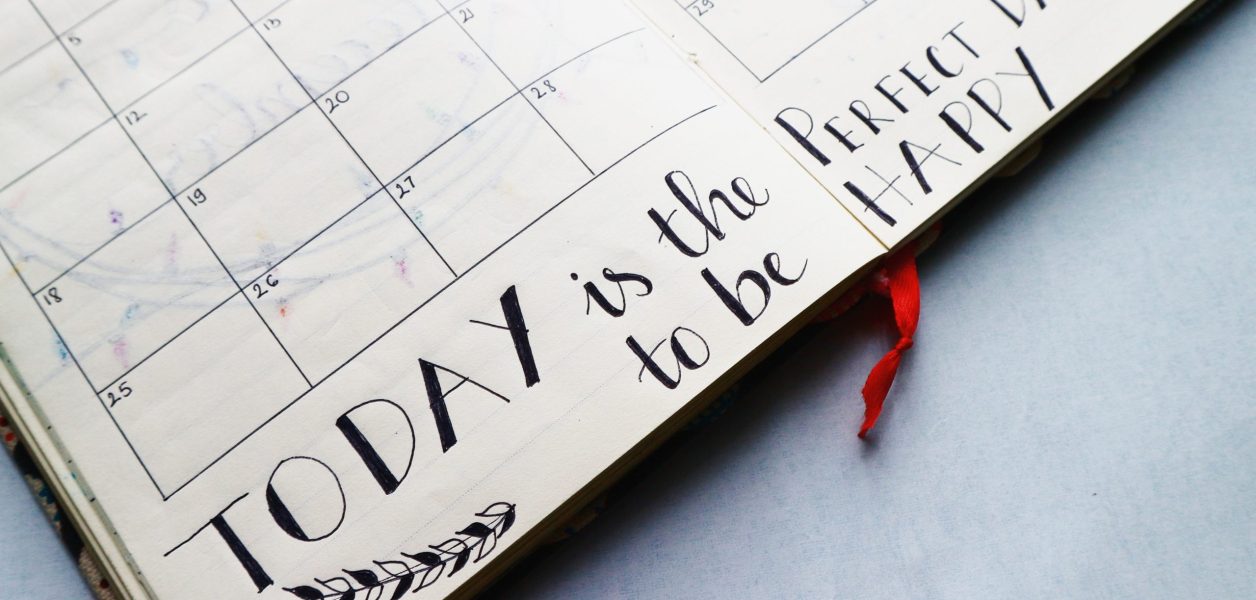 5
12 13
18 19 20 21
25 26 27 28
TODAY is the
to be
29
PERFECT
HAPPY